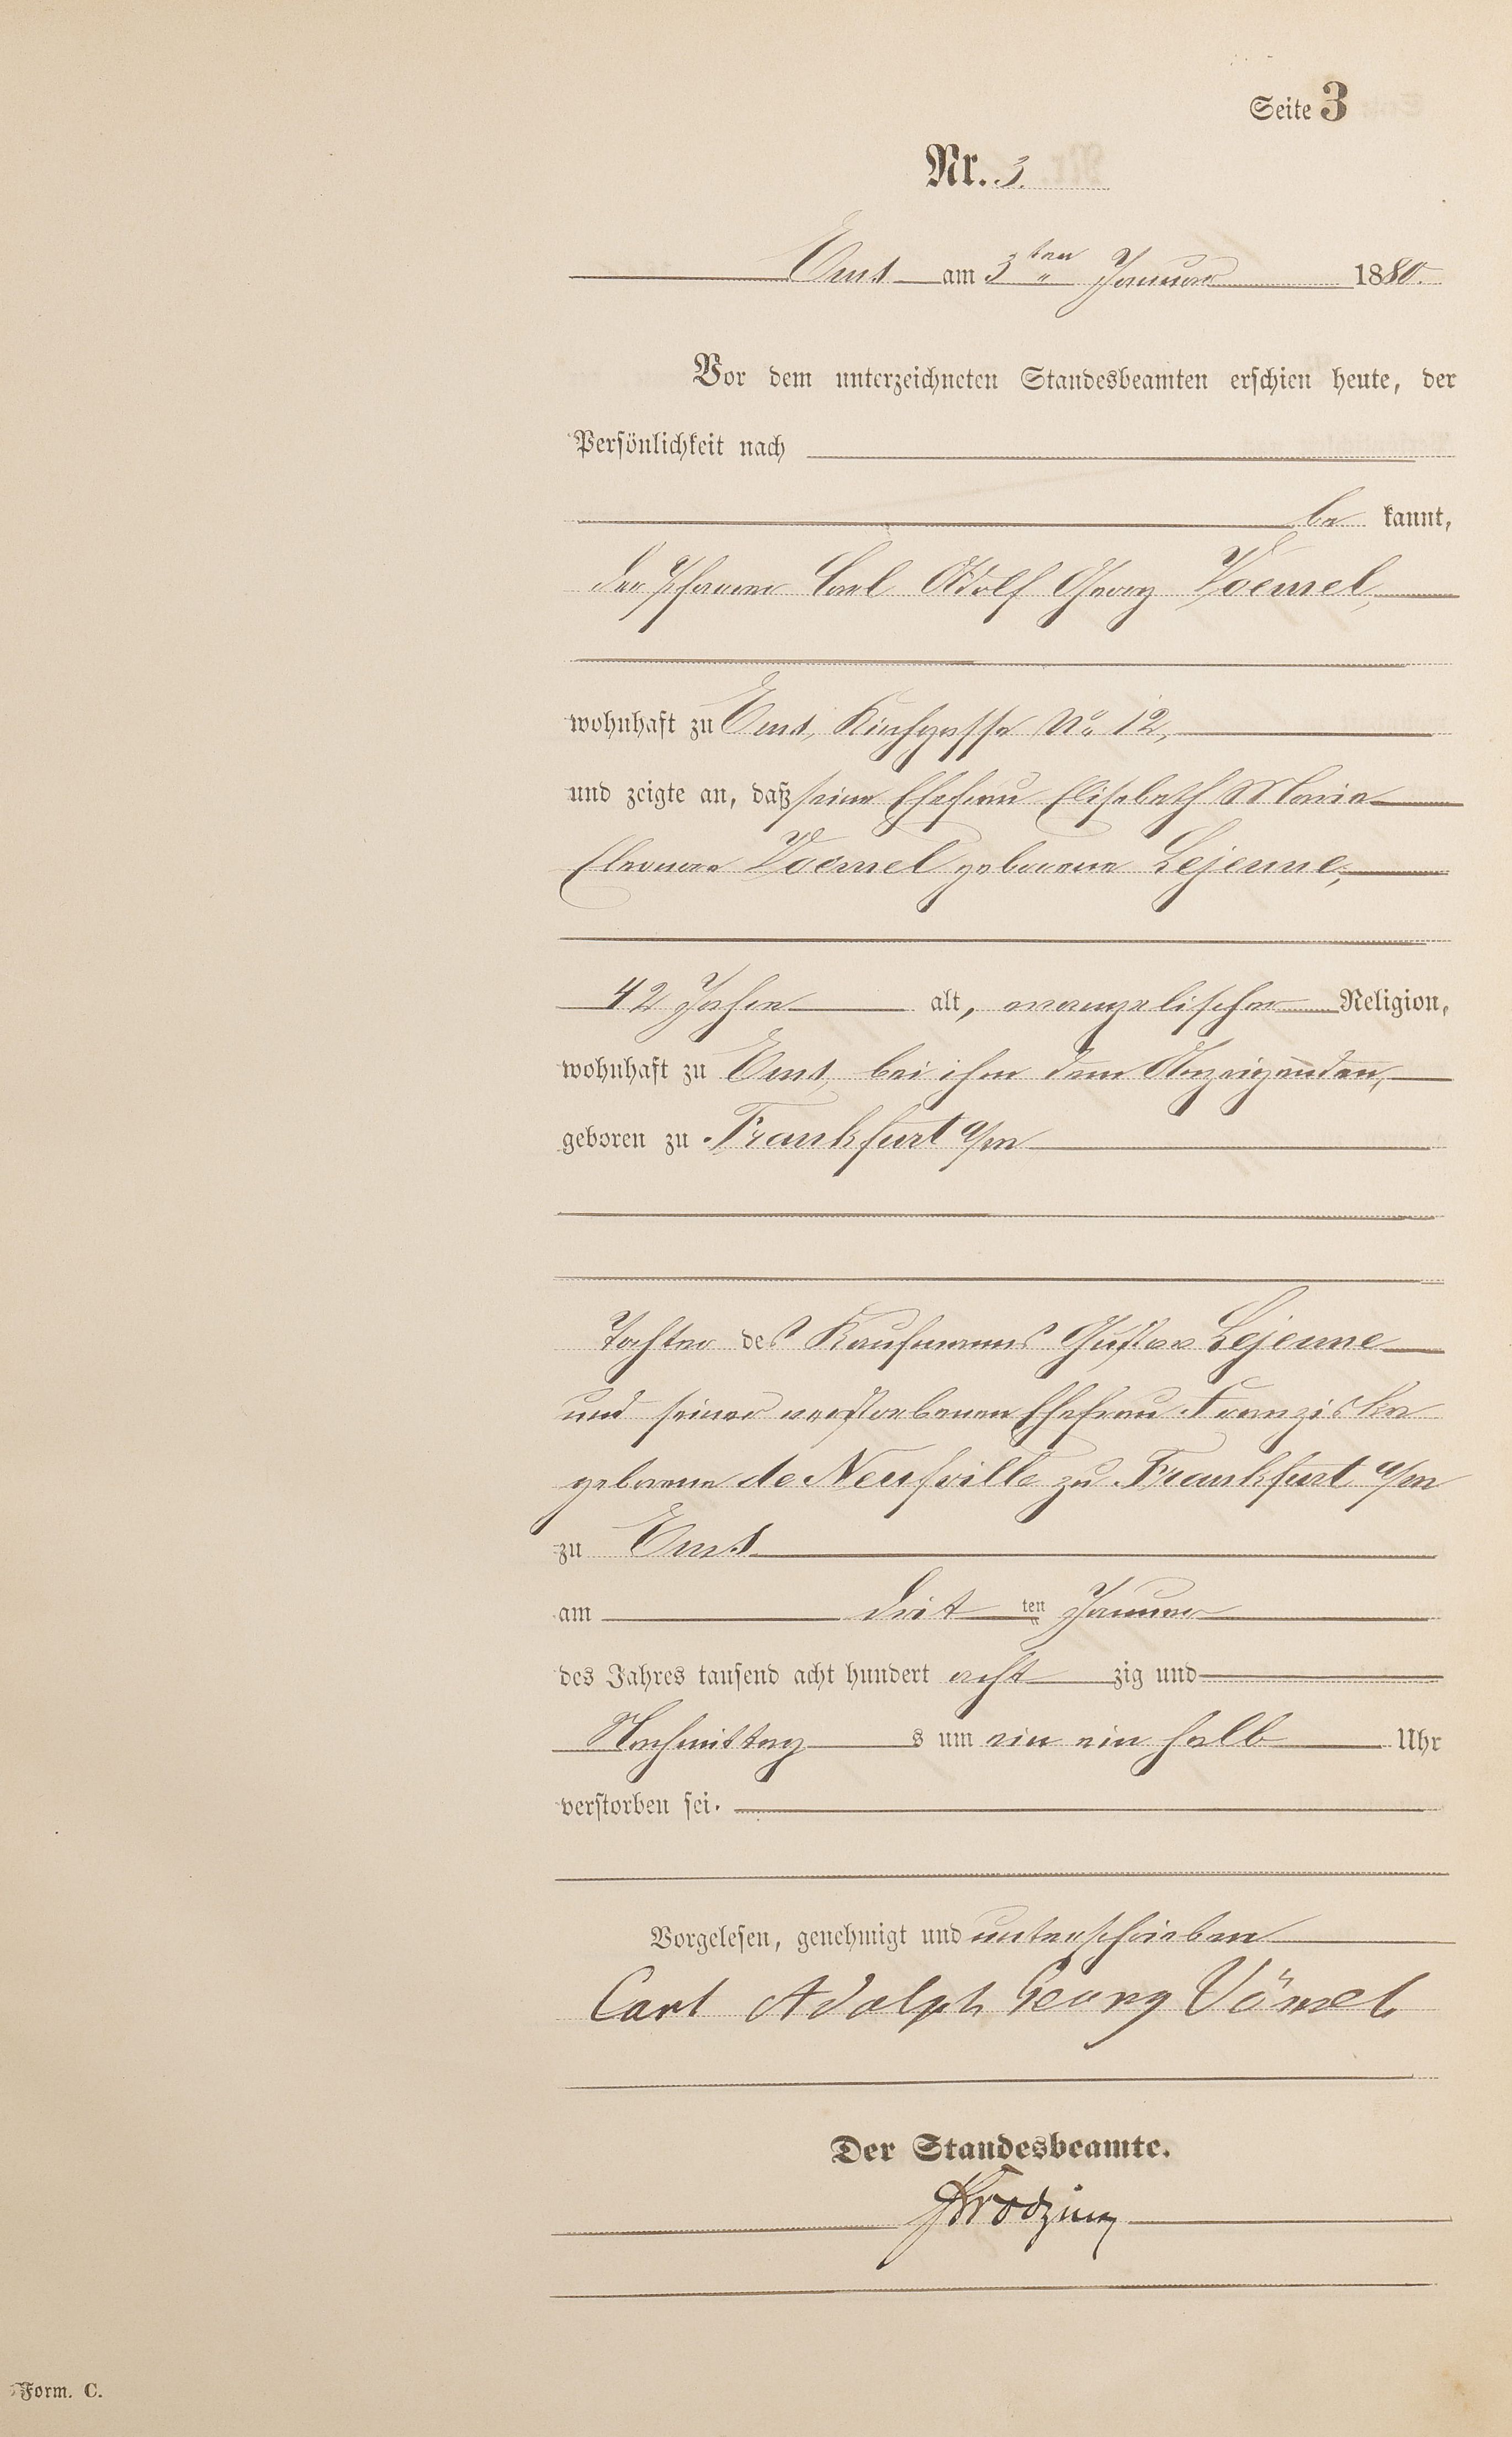 Seite 3
Nr. 3.
Ems am 3ten Januar 1880.
Vor dem unterzeichneten Standesbeamten erschien heute, der
Persönlichkeit nach
be kannt,
der Pfarrer Carl Adolf Georg Voemel,
wohnhaft zu Ems, Kirchgasse No 12,
und zeigte an, daß seine Ehefrau Elisabeth Maria
Eleonore Voemel geborene Lejeune,
42 Jahre alt, evangelischer Religion,
wohnhaft zu Ems, bei ihm dem Anzeigenden,
geboren zu Frankfurt a/m
Tochter des Kaufmanns Gustav Lejeune
und seiner verstorbenen Ehefrau Franziska
geborene de Neufville zu Frankfurt a/m
zu Ems
am dritten Januar
des Jahres tausend acht hundert acht zig und
Nachmittag s um ein ein halb Uhr
verstorben sei.
Vorgelesen, genehmigt und unterschrieben
Carl Adolph Georg Vömel
Der Standesbeamte.
Form. C.